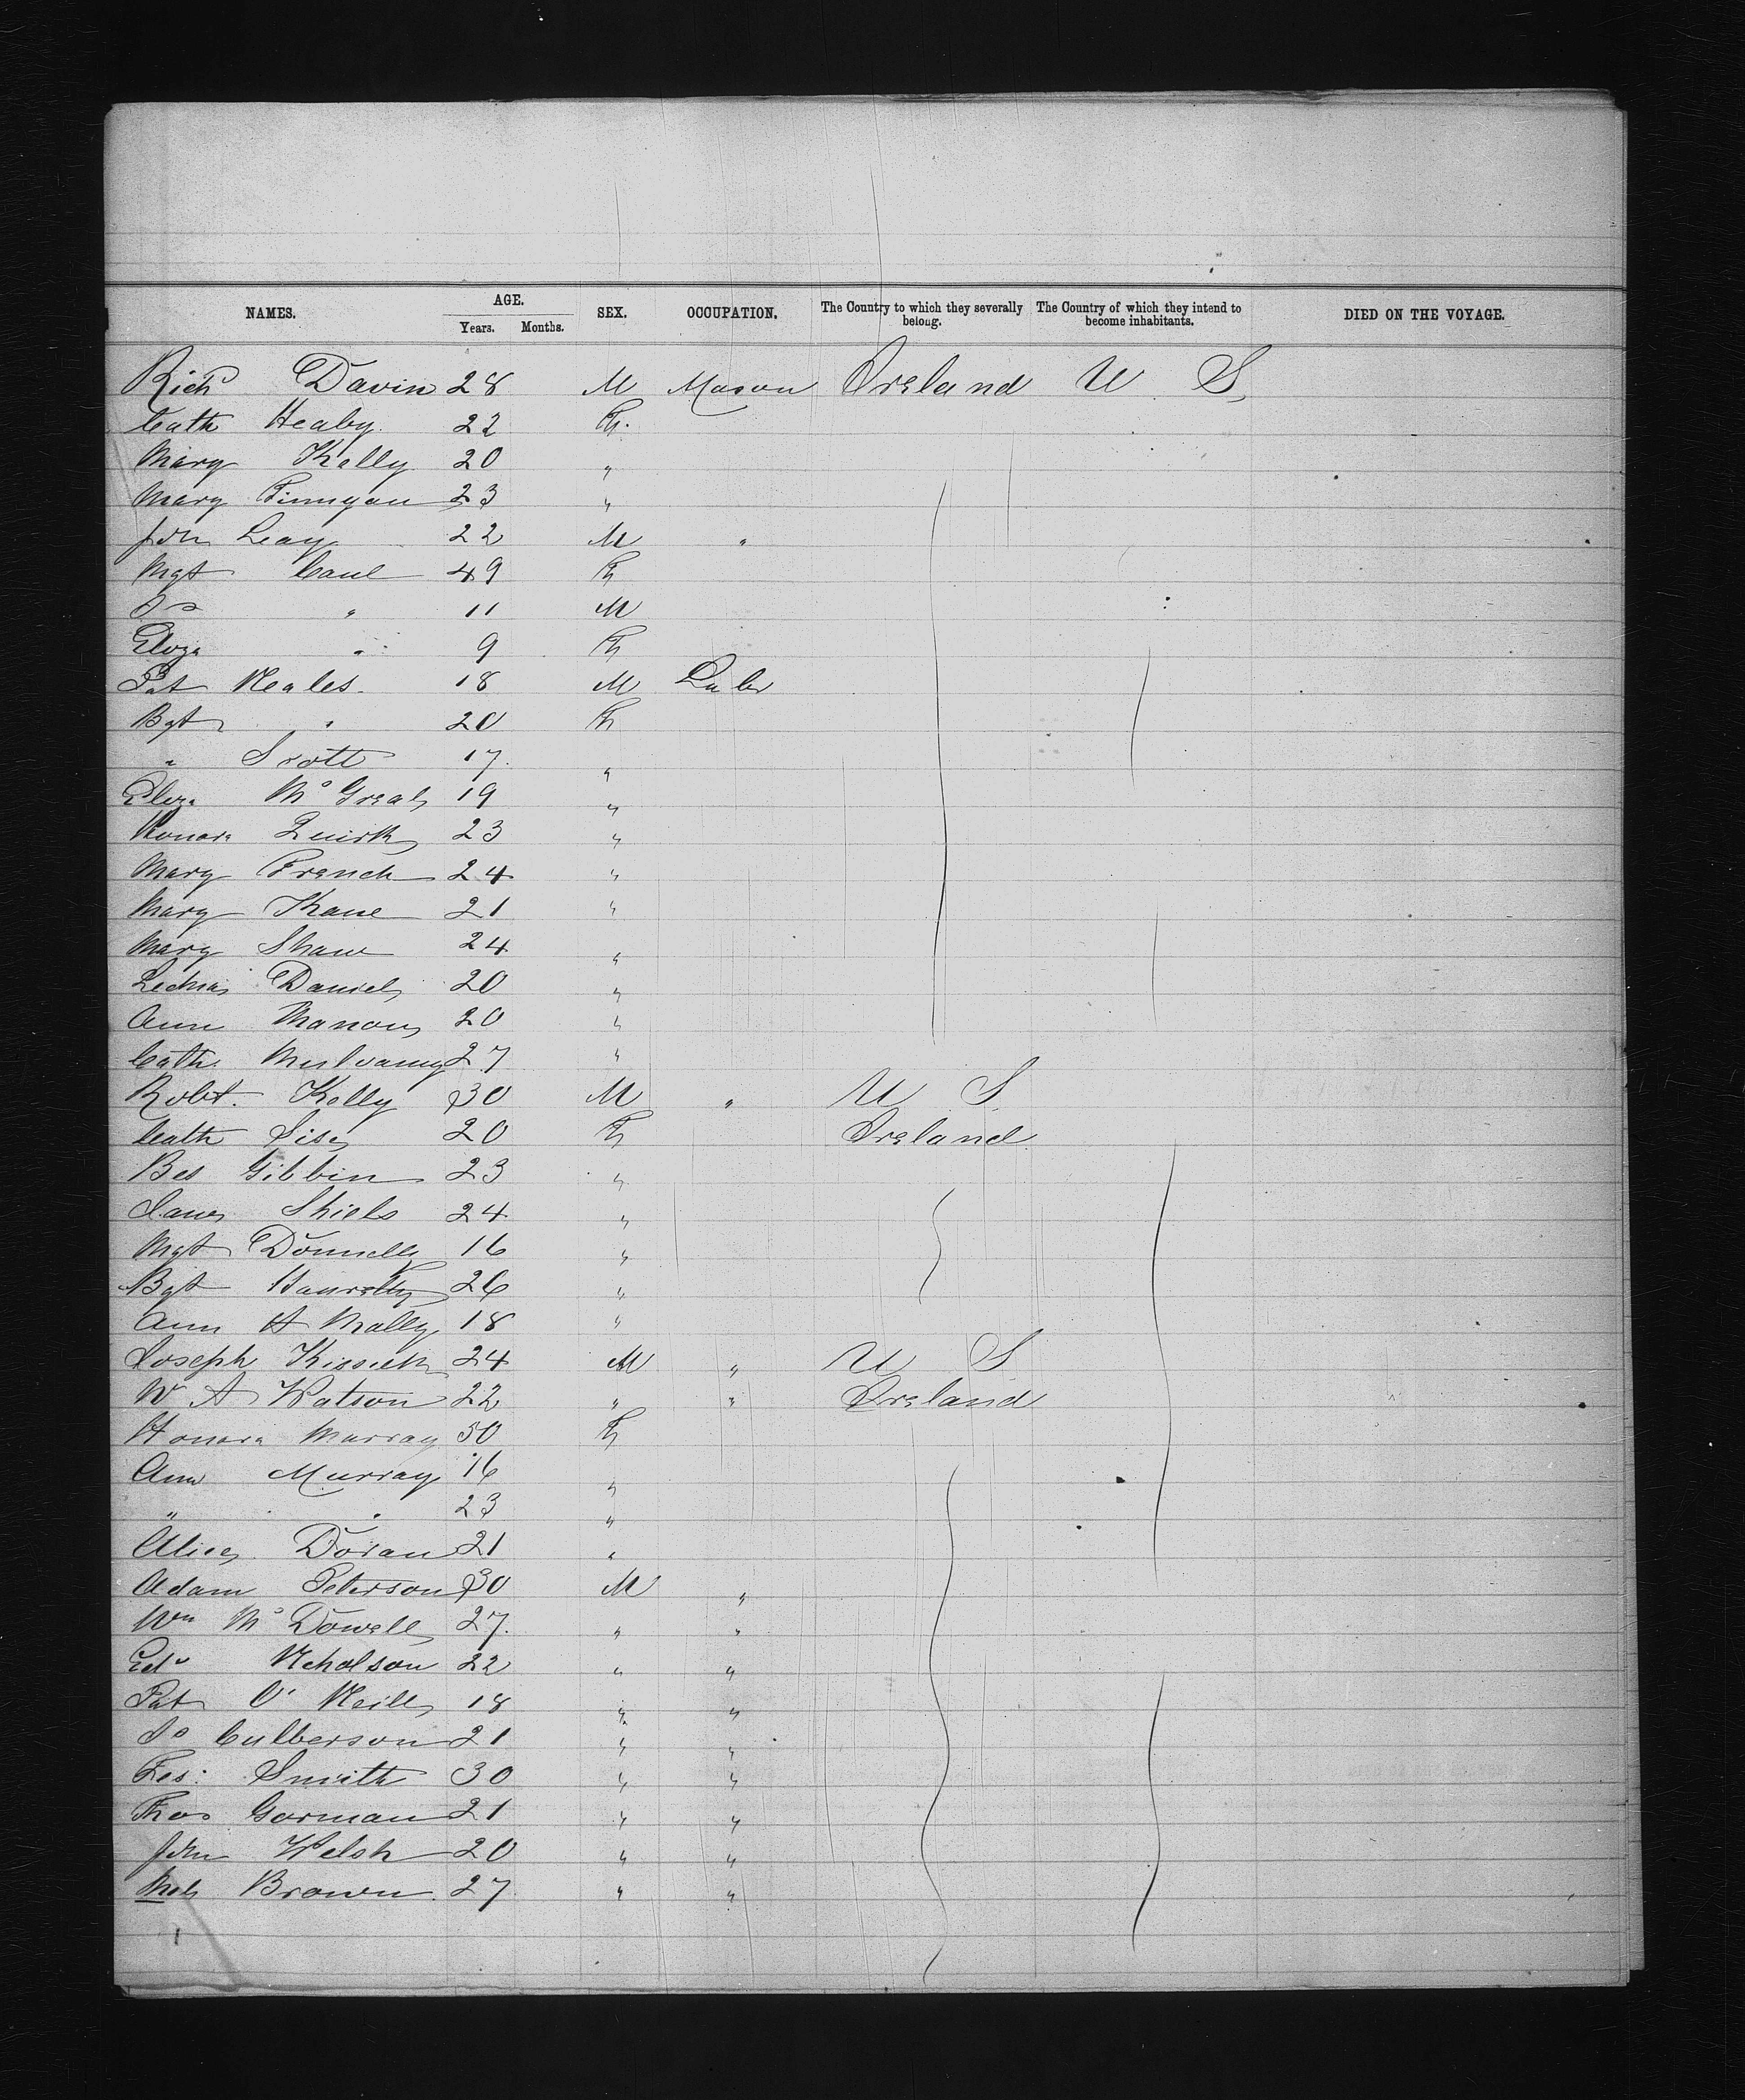 NAMES. AGE. SEX. OCCUPATION. The Country to which they severally belong. The Country of which they intend to become inhabitants. DIED ON THE VOYAGE.
Years. Months.
Richd Davin 28 M Mason Ireland U S
Cath Healy 22 F
Mary Kelly 20 "
Mary Finnigan 23 "
John Leay 22 M "
Mgt Caul 49 F
Jo " 11 M
Eliza " 9 F
Pat Neales 18 M Labr
Bgt " 20 F
" Scott 17 "
Eliza McGreal 19 "
Honora Quirk 23 "
Mary French 24 "
Mary Kane 21 "
Mary Shaw 24 "
Daniel 20 "
Ann Manon 20 "
Cath Mulvanny 27 "
Robt. Kelly 30 M " U S
Cath 20 F Ireland
Bes Gibbin 23 "
Shiels 24 "
Mgt Donnelly 16 "
Bgt 26 "
Ann Malley 18 "
Joseph 24 M " U S
W A Watson 22 " " Ireland
Honora Murray 50 F
Ann Murray 16 "
" " 23 "
Alice Doran 21 "
Adam Peterson 30 M "
Wm McDowell 27 " "
Edw Nicholson 22 " "
Pat O'Neill 18 " "
Jo Culberson 21 " "
Smith 30 " "
Thos Gorman 21 " "
John Welsh 20 " "
Brown 27 " "